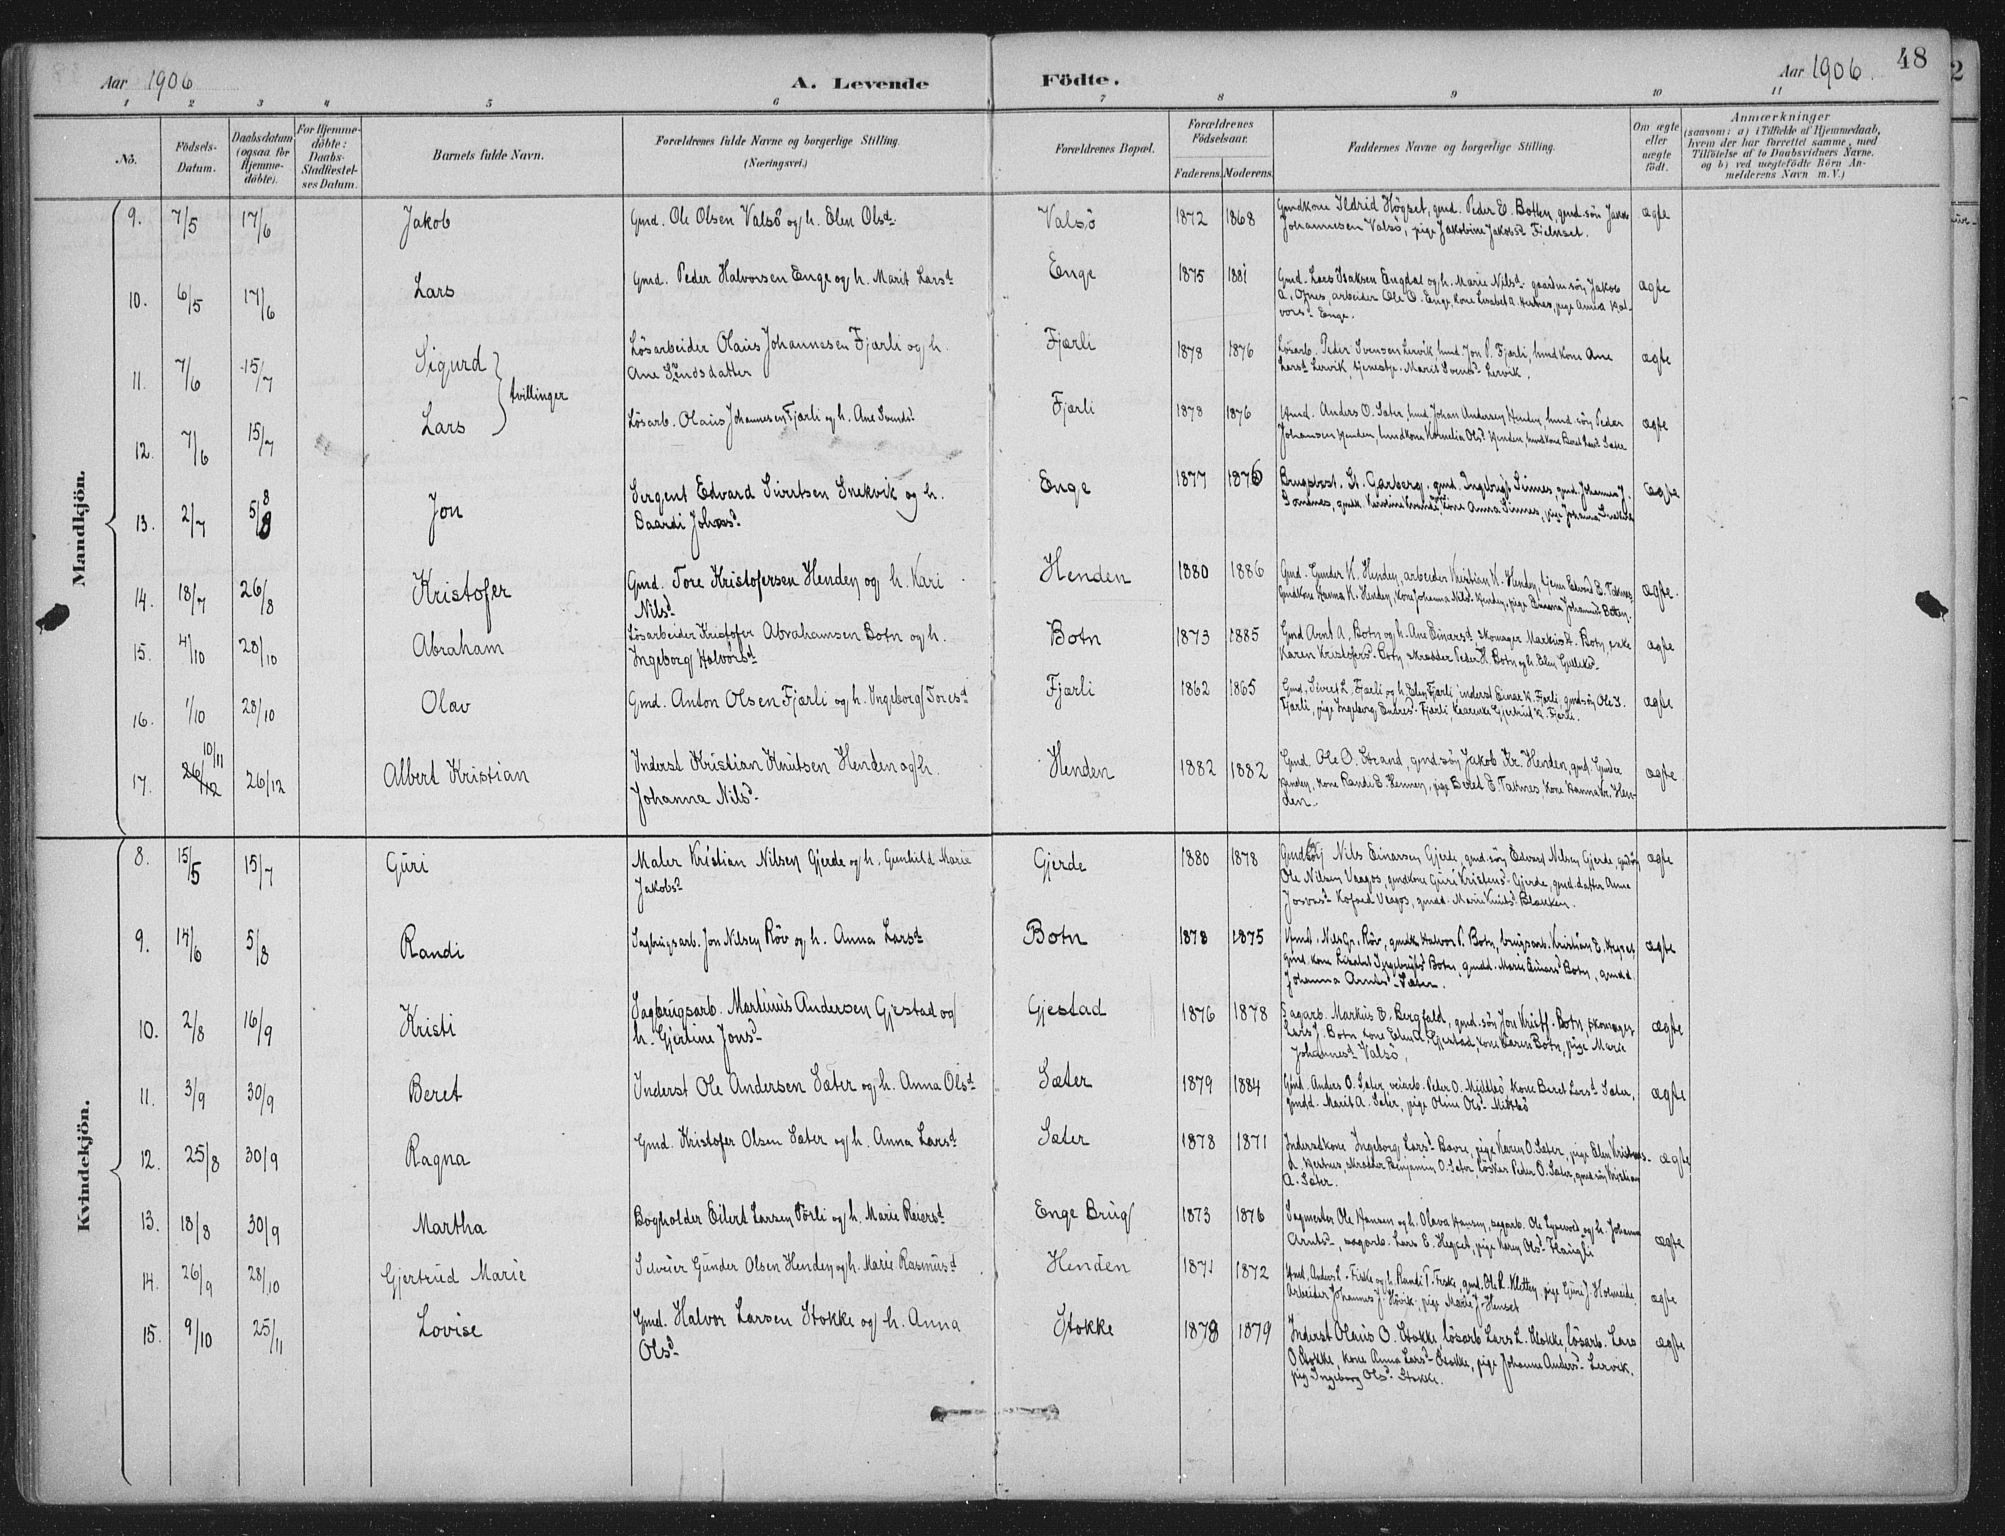 Aar 1906 A. Levende Födte. Aar 1906. 48
1 2 3 4 5 6 7 8 9 10 11
No. Födsels-Datum. Daabsdatum (ogsaa for Hjemme-döbte). For Hjemme-döbte: Daabs-Stadfæstel-ses Datum. Barnets fulde Navn. Forældrenes fulde Navne og borgerlige Stilling. (Næringsvei.) Forældrenes Bopæl. Forældrenes Födselsaar. Faderens. Moderens. Faddernes Navne og borgerlige Stilling. Om ægte eller uægte födt. Anmærkninger
(saasom: a) i Tilfælde af Hjemmedaab,
hvem der har forrettet samme, med
Tilföielse af to Daabsvidners Navne.
og b) ved uægtefödte Börn An-
melderens Navn m. V.)
Mandkjön.
9. 7/5 17/6 Jakob Gmd. Ole Olsen Valsö og h. Elen Olsd. Valsö 1872 1868 Gmdkone Ildrid Högset, gmd. Peder E. Botten, gmd. sön Jakob ægte
Johannesen Valsö, pige Jakobine Jakobsd.
10. 6/5 17/6 Lars Gmd. Peder Halvorsen Enge og h. Marit Larsd. Enge 1875 1881 Gmd. Lars Isaksen Engdal og h. Marie Nilsd. gaardm. sön Jakob ægte
arbeider Ole O. Enge, kone Lisabet A. Hertnes, pige
Enge.
11. 7/6 15/7 Sigurd } tvillinger Lösarbeider Olaus Johannesen Fjærli og h. Fjærli 1878 1876 Lösarb. Peder Svensen Lervik, hmd. Jon P. Fjærli, hmdkone Ane ægte
Ane Svendsdatter
Larsd. Lervik, tjenestpi. Marit Svensd. Lervik.
12. 7/6 15/7 Lars Lösarb. Olaus Johannesen Fjærli og h. Ane Svendsd. Fjærli 1878 1876 Hmd. Anders O. Sæter, hmd. Johan Andersen Henden, hmd. sön Peder ægte
Johansen Henden, hmdkone Kornelia Olsd. Henden, hmdkone Beret Larsd. Sæter
13. 2/7 5/8 8 Jon Sergent Edvard Sivertsen Snekvik og h. Enge 1877 1876 Brugsbest. St. Garberg, gmd. Ingebrigt Sinnes, gmd. Johannes J. ægte
kone Anna Sinnes, pige Johanna Snekvik
14. 18/7 26/8 Kristofer Gmd. Tore Kristofersen Henden og h. Kari Henden 1880 1886 Gmd. Gunder K. Henden, arbeider Kristian K. Henden, tjener Edvard E. Taknes, ægte.
Nilsd.
Gmdkone Hanna K. Henden, kone Johanna Nilsd. Henden, pige Johannesd. Botten.
15. 4/10 28/10 Abraham Lösarbeider Kristofer Abrahamsen Botn og h. Botn 1873 1885 Gmd Arnt A. Botn og h. Ane Einarsd. skomager Markus Botn, enke ægte
Ingeborg Halvorsd.
Karen Kristofersd. Botn skrædder Peder H. Botn og h. Elen
16. 1/10 28/10 Olav Gmd. Anton Olsen Fjærli og h. Ingeborg Toresd. Fjærli 1862 1865 Gmd. Sivert L. Fjærli og h. Elen Fjærli, inderst Einar K. Fjærli, gmdsön Ole S. ægte
Fjærli, pige Ingeborg Endresd. Fjærli, Kaarenke Gjertrud K. Fjærli.
17. 26/12 10/11 26/12 Albert Kristian Inderst Kristian Knutsen Henden og h. Henden 1882 1882 Gmd. Ole O. Strand, gmd. sön Jakob Kr. Henden, gmd. Gunder ægte
Johanna Nilsd.
Henden, kone Randi E. Hennen, pige Beret E. Taknes kone Hanna Kr. Hen-
den.
Kvindekjön.
8. 15/5 15/7 Guri Maler Kristian Nilsen Gjerde og h. Gunhild Marie Gjerde 1880 1878 Gmdsön Nils Einarsen Gjerde, gmd. sön Edvard Nilsen Gjerde, gmdsön ægte
Jakobsd.
Ole Nilsen Vaagos, gmdkone Guri Kristensd. Gjerde, gmd. datter Anne
Josvasd. Kofoed Vaagos, gmdd. Marie Knutsd. Blakken.
9. 14/6 5/8 Randi Sagbrugsarb. Jon Nilsen Röv og h. Anna Larsd. Botn 1878 1875 Hmd. Nils Gr. Röv, gmdk. Halvor P. Botn, brugsarb. Kristian E. ægte
gmd. kone Lisabet Ingebrigtsd. Botn, gmdd. Marie Einarsd. Botn, gmdd.
Johanna Arntsd. Sæter.
10. 2/8 16/9 Kristi Sagbrugsarb. Martinus Andersen Gjestad og Gjestad 1876 1878 Sagarb. Markus E. Bergfald, gmd. sön Jon Kristf. Botn, skomager ægte
h. Gjertine Jonsd.
Lars J. Botn, kone Elen A. Gjestad, kone Karen Botn, pige Marie
Johannesd. Valsö.
11. 3/9 30/9 Beret Inderst Ole Andersen Sæter og h. Anna Olsd. Sæter 1879 1884 Gmd. Anders O. Sæter, veiarb. Peter O. Mittlö kone Beret Larsd. Sæter, ægte
gmdd. Marit A. Sæter, pige Oline Olsd. Mittlö
12. 25/8 30/9 Ragna Gmd. Kristofer Olsen Sæter og h. Anna Larsd. Sæter 1878 1871 Inderstkone Ingeborg Larsd. Bævre, pige Karen O. Sæter, pige Elen Kristensd. ægte
Hertnes, skrædder Benjamin O. Sæter, Peder O. Sæter, gmd sön Kristian
A. Sæter.
13. 18/8 30/9 Martha Bogholder Eilert Larsen Vorli og h. Marie Reiersd. Enge Brug 1873 1876 Sagmester Ole Hansen og h. Olava Hansen, sagarb. Ole og h. Johanna ægte
Arntsd., sagarb. Lars E. pige Karen Olsd.
14. 26/9 28/10 Gjertrud Marie Selveier Gunder Olsen Henden og h. Marie Rasmusd. Henden 1871 1872 Hmd. Anders L. Fiske og h. Randi T. Fiske, gmd. Ole R. Kletten, pige Guri J. Holmeide, ægte
arbeider Johannes J. Hövik, pige Marie J. Henset
15. 9/10 25/11 Lovise Gmd. Halvor Larsen Stokke og h. Anna Stokke 1878 1879 Inderst Olaus O. Stokke lösarb Lars L. Stokke, lösarb. Lars ægte
Olsd.
O Stokke, kone Anna Larsd. Stokke, pige Johanne Andersd. Lervik,
pig Ingeborg Olsd. Stokke.